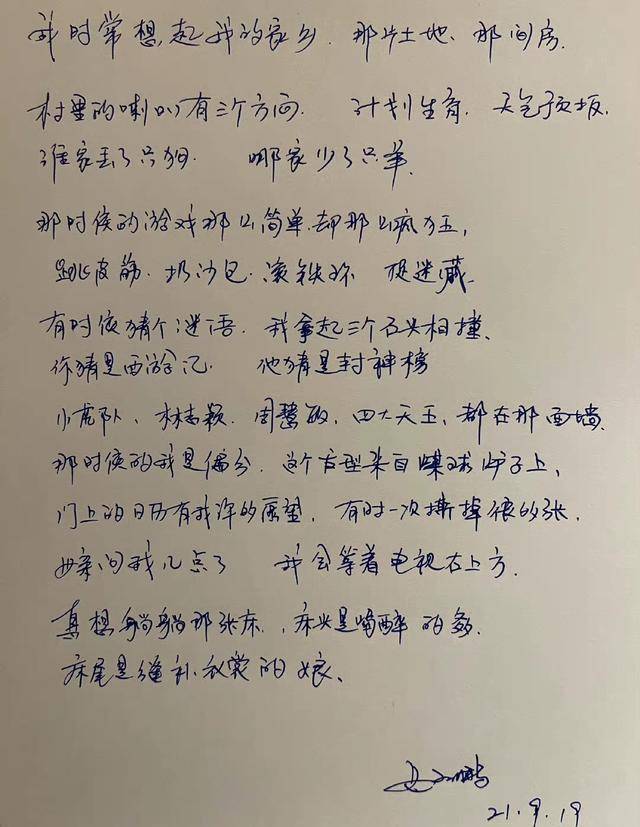 我时常想起我的家乡.那片土地、那间房.
村里的喇叭有三个方向. 计划生育. 天气预报.
谁家丢了只狗. 哪家少了只羊.
那时候的游戏那么简单.却那么疯狂,
跳皮筋.扔沙包.滚铁环 捉迷藏.
有时候猜个谜语.我拿起三个石头相撞.
你猜是西游记. 他猜是封神榜
小虎队、林志颖.周慧敏,四大天王,都在那面墙.
那时候的我是偏分.这个发型来自煤球炉子上,
门上的日历有我许的愿望,有时一次撕掉很多张.
母亲问我几点了 我会等着电视右上方.
真想躺躺那张床.,床头是喝醉的爹.
床尾是缝补衣裳的娘、
21.9.19